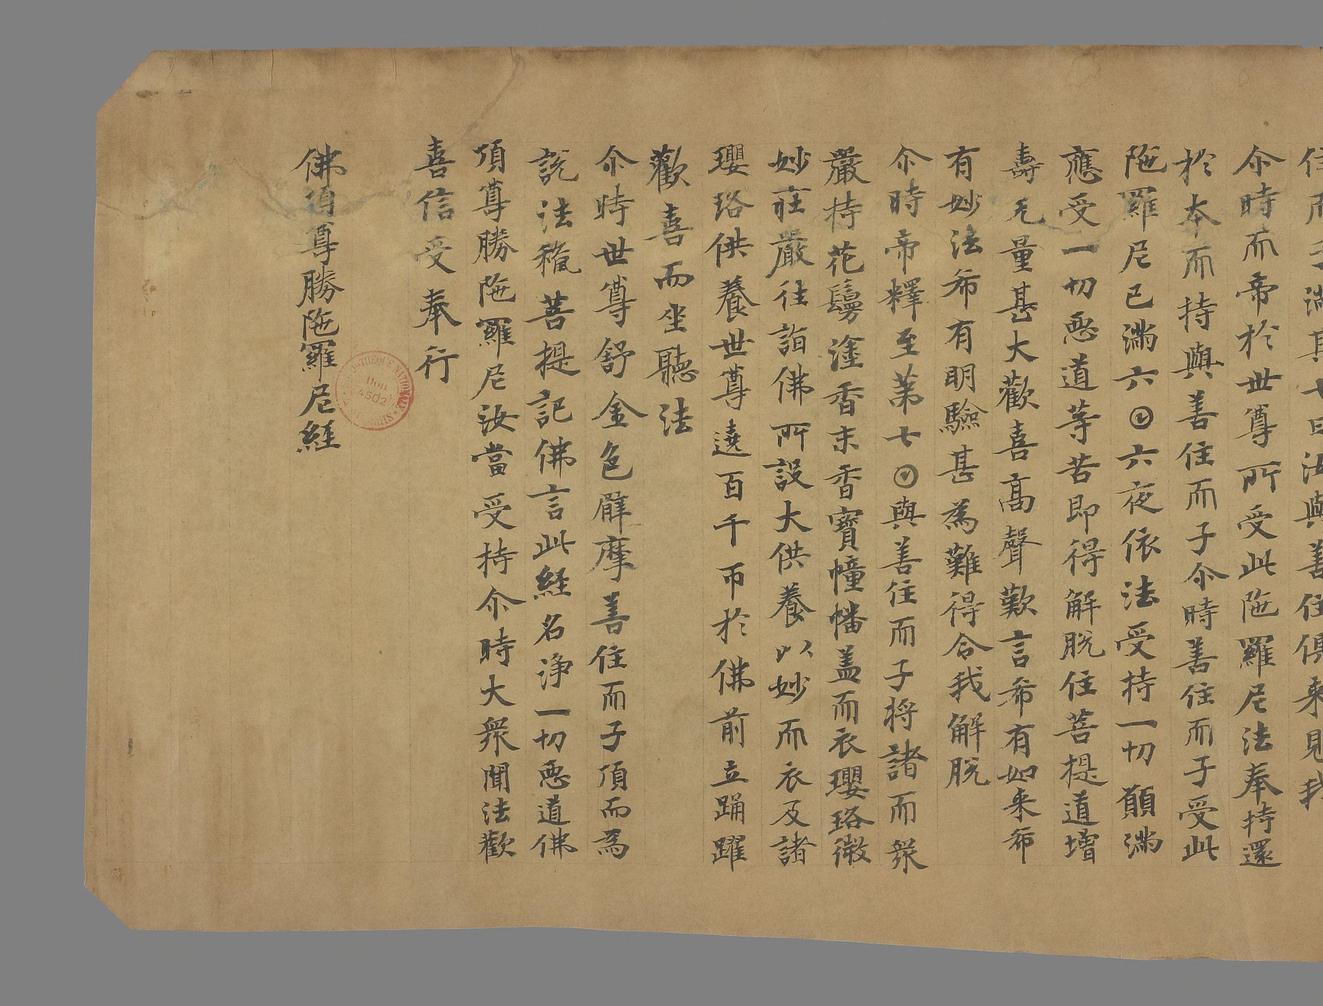 住𠀑子滿其七日汝與善住俱来見我
尒時𠀑帝於世尊所受此陁羅尼法奉持還
於本𠀑持與善住𠀑子尒時善住𠀑子受此
陁羅尼已滿六𡆠六夜依法受持一切願滿
應受一切惡道等苦即得解脫住菩提道增
壽无量甚大歡喜高聲歎言希有如来希
有妙法希有明驗甚為難得令我解脫
尒時帝釋至第七𡆠與善住𠀑子将諸𠀑衆
嚴持花鬘塗香末香寶幢幡盖𠀑衣瓔珞微
妙莊嚴往詣佛所設大供養以妙𠀑衣及諸
瓔珞供養世尊遶百千帀於佛前立踊躍
歡喜而坐聽法
尒時世尊舒金色臂摩善住𠀑子頂而為
說法𥠢菩提記佛言此經名淨一切惡道佛
頂尊勝陁羅尼汝當受持尒時大衆聞法歡
喜信受奉行
佛頂尊勝陁羅尼經
Don
4502